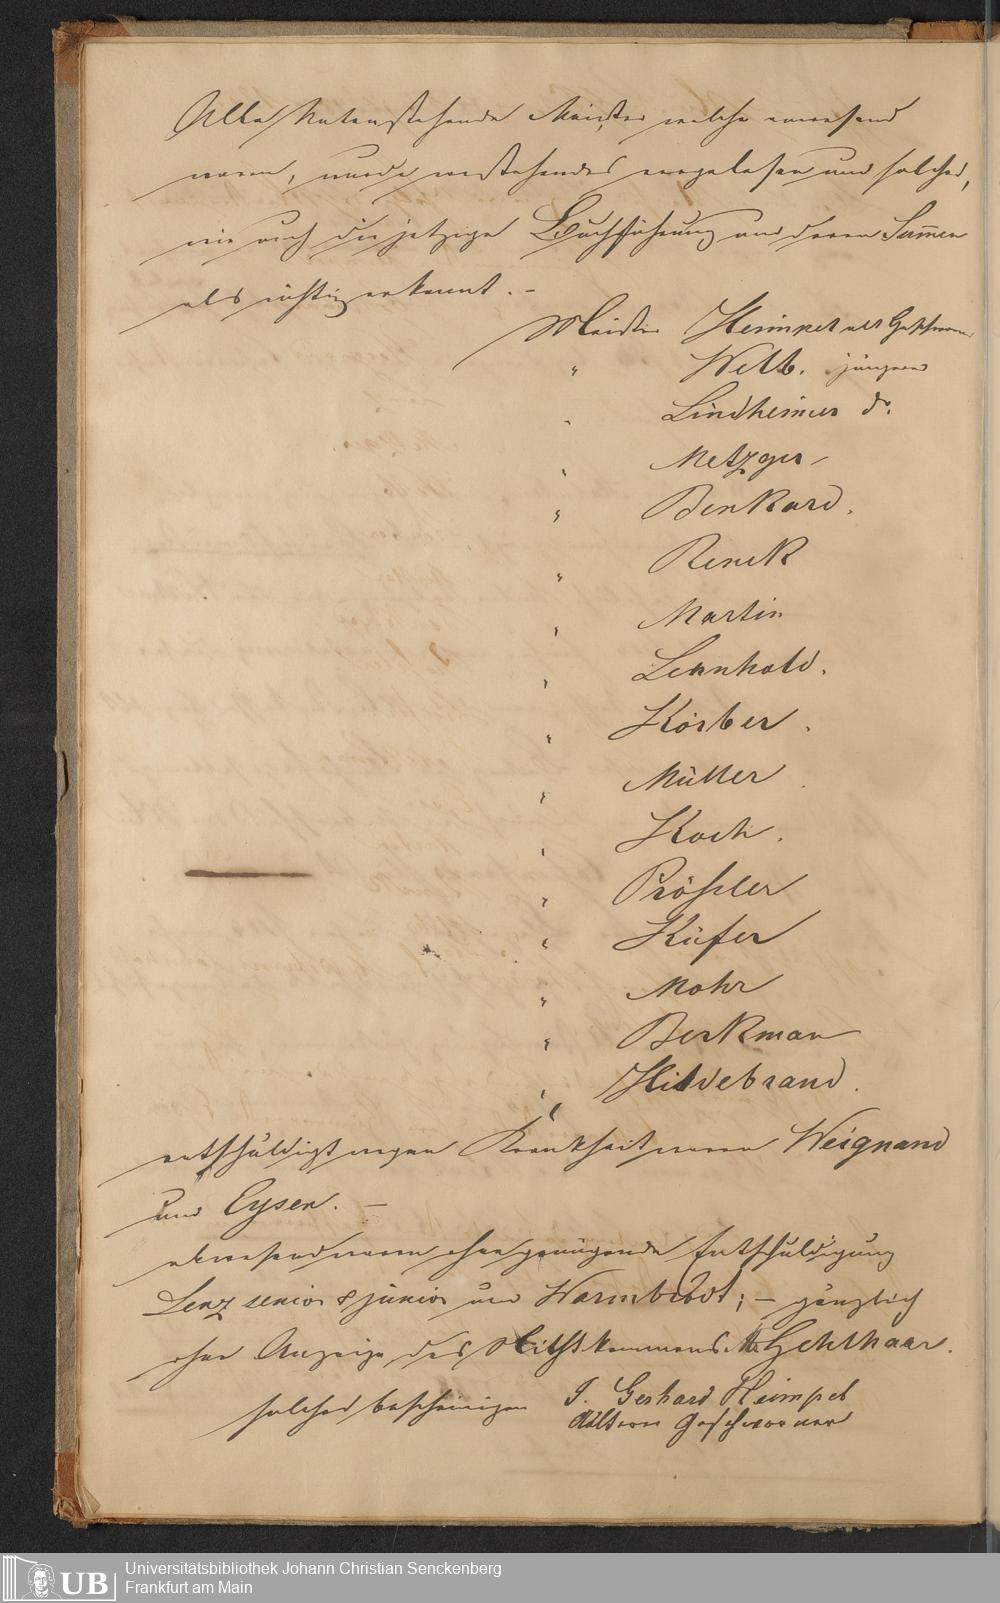 Alle Untenstehende Meister welche anwesend
waren, wurde vorstehendes vorgelesen und solches,
wie auch die jetzige Buchführung und deren Summen
als richtig erkannt. –
Meister Heimpel als Geschworner
" Welb. jüngerer
" Lindheimer do.
" Metzger
" Benkard.
" Renck
" Martin
" Leonhold.
" Körber.
" Müller
" Koch.
" Prößler
" Küfer
" Mohr
" Berkman
" Hildebrand.
entschuldigt wegen Krankheit waren Weignand
und Eysen. –
abwesend waren ohne genügende Entschuldigung
Lenz senior & junior und Warmbrodt; – gänzlich
ohne Anzeige des Nichtkommens M. Gehlhaar.
solches bescheinigen J. Gerhard Heimpel
Älterer Geschworner
Universitätsbibliothek Johann Christian Senckenberg
Frankfurt am Main
UB